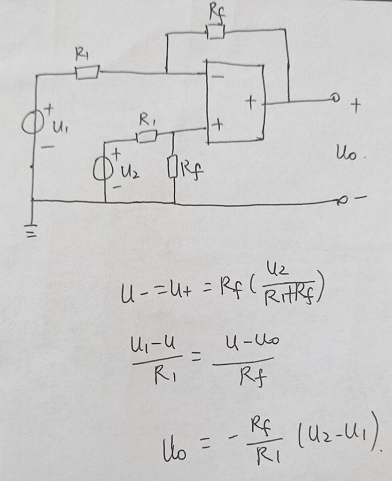 Rf
R1
−
+
+
+
U1
−
R1
+
U2
−
Rf
+
Uo.
−
U- = U+ = Rf ( U2 / (R1+Rf) )
(U1-U) / R1 = (U-Uo) / Rf
Uo = - Rf / R1 (U2-U1).